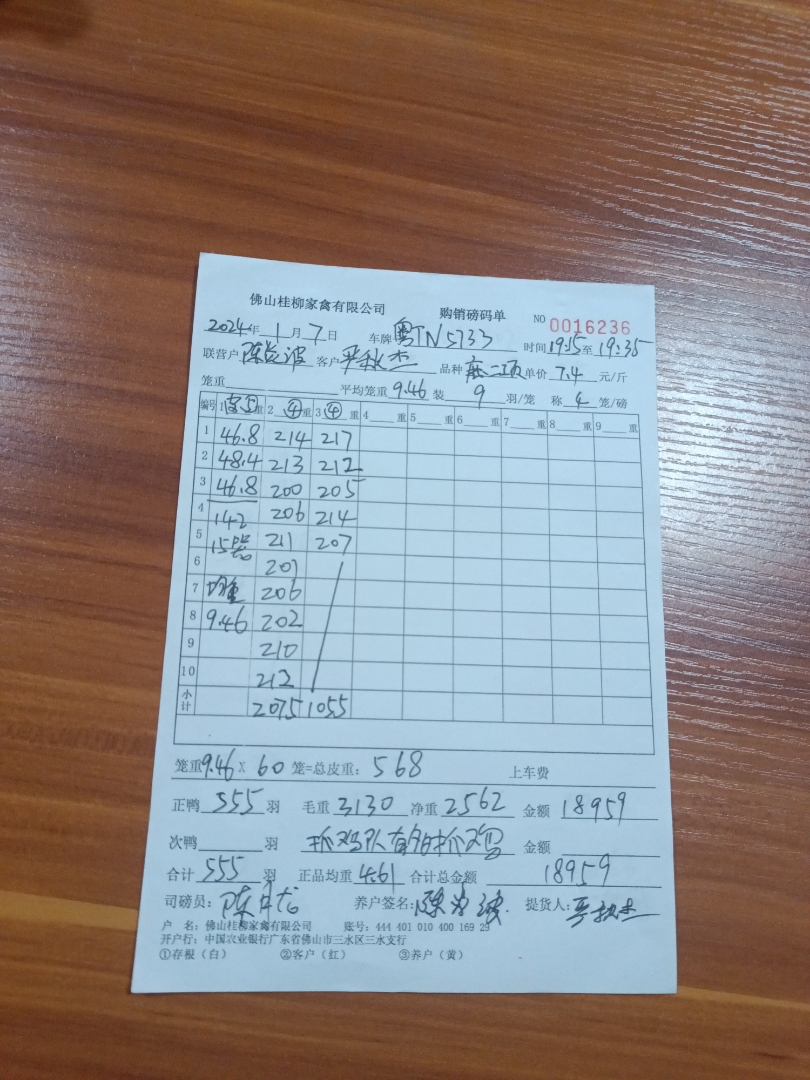 佛山桂柳家禽有限公司 购销磅码单 NO 0016236
2024年 1月 7日 车牌 粤TN5733 时间 19:15至 19:35
联营户 陈 波 客户 严秋杰 品种 麻二项 单价 7.4 元/斤
笼重 平均笼重 9.46 装 9 羽/笼 称 4 笼/磅
编号 1 重 2 ④ 重 3 ④ 重 4 重 5 重 6 重 7 重 8 重 9 重
1 46.8 214 217
2 48.4 213 212
3 46.8 200 205
4 142 206 214
5 15 211 207
6 201
7 均重 206
8 9.46 202
9 210
10 212
小计 2075 1055
笼重 9.46 X 60 笼=总皮重: 568 上车费
正鸭 555 羽 毛重 3130 净重 2562 金额 18959
次鸭 羽 抓鸡队有 抓 金额
合计 555 羽 正品均重 4.61 合计总金额 18959
司磅员: 陈 养户签名: 陈 波 提货人: 严秋杰
户 名: 佛山桂柳家禽有限公司 账号: 444 401 010 400 169 29
开户行: 中国农业银行广东省佛山市三水区三水支行
①存根(白) ②客户(红) ③养户(黄)